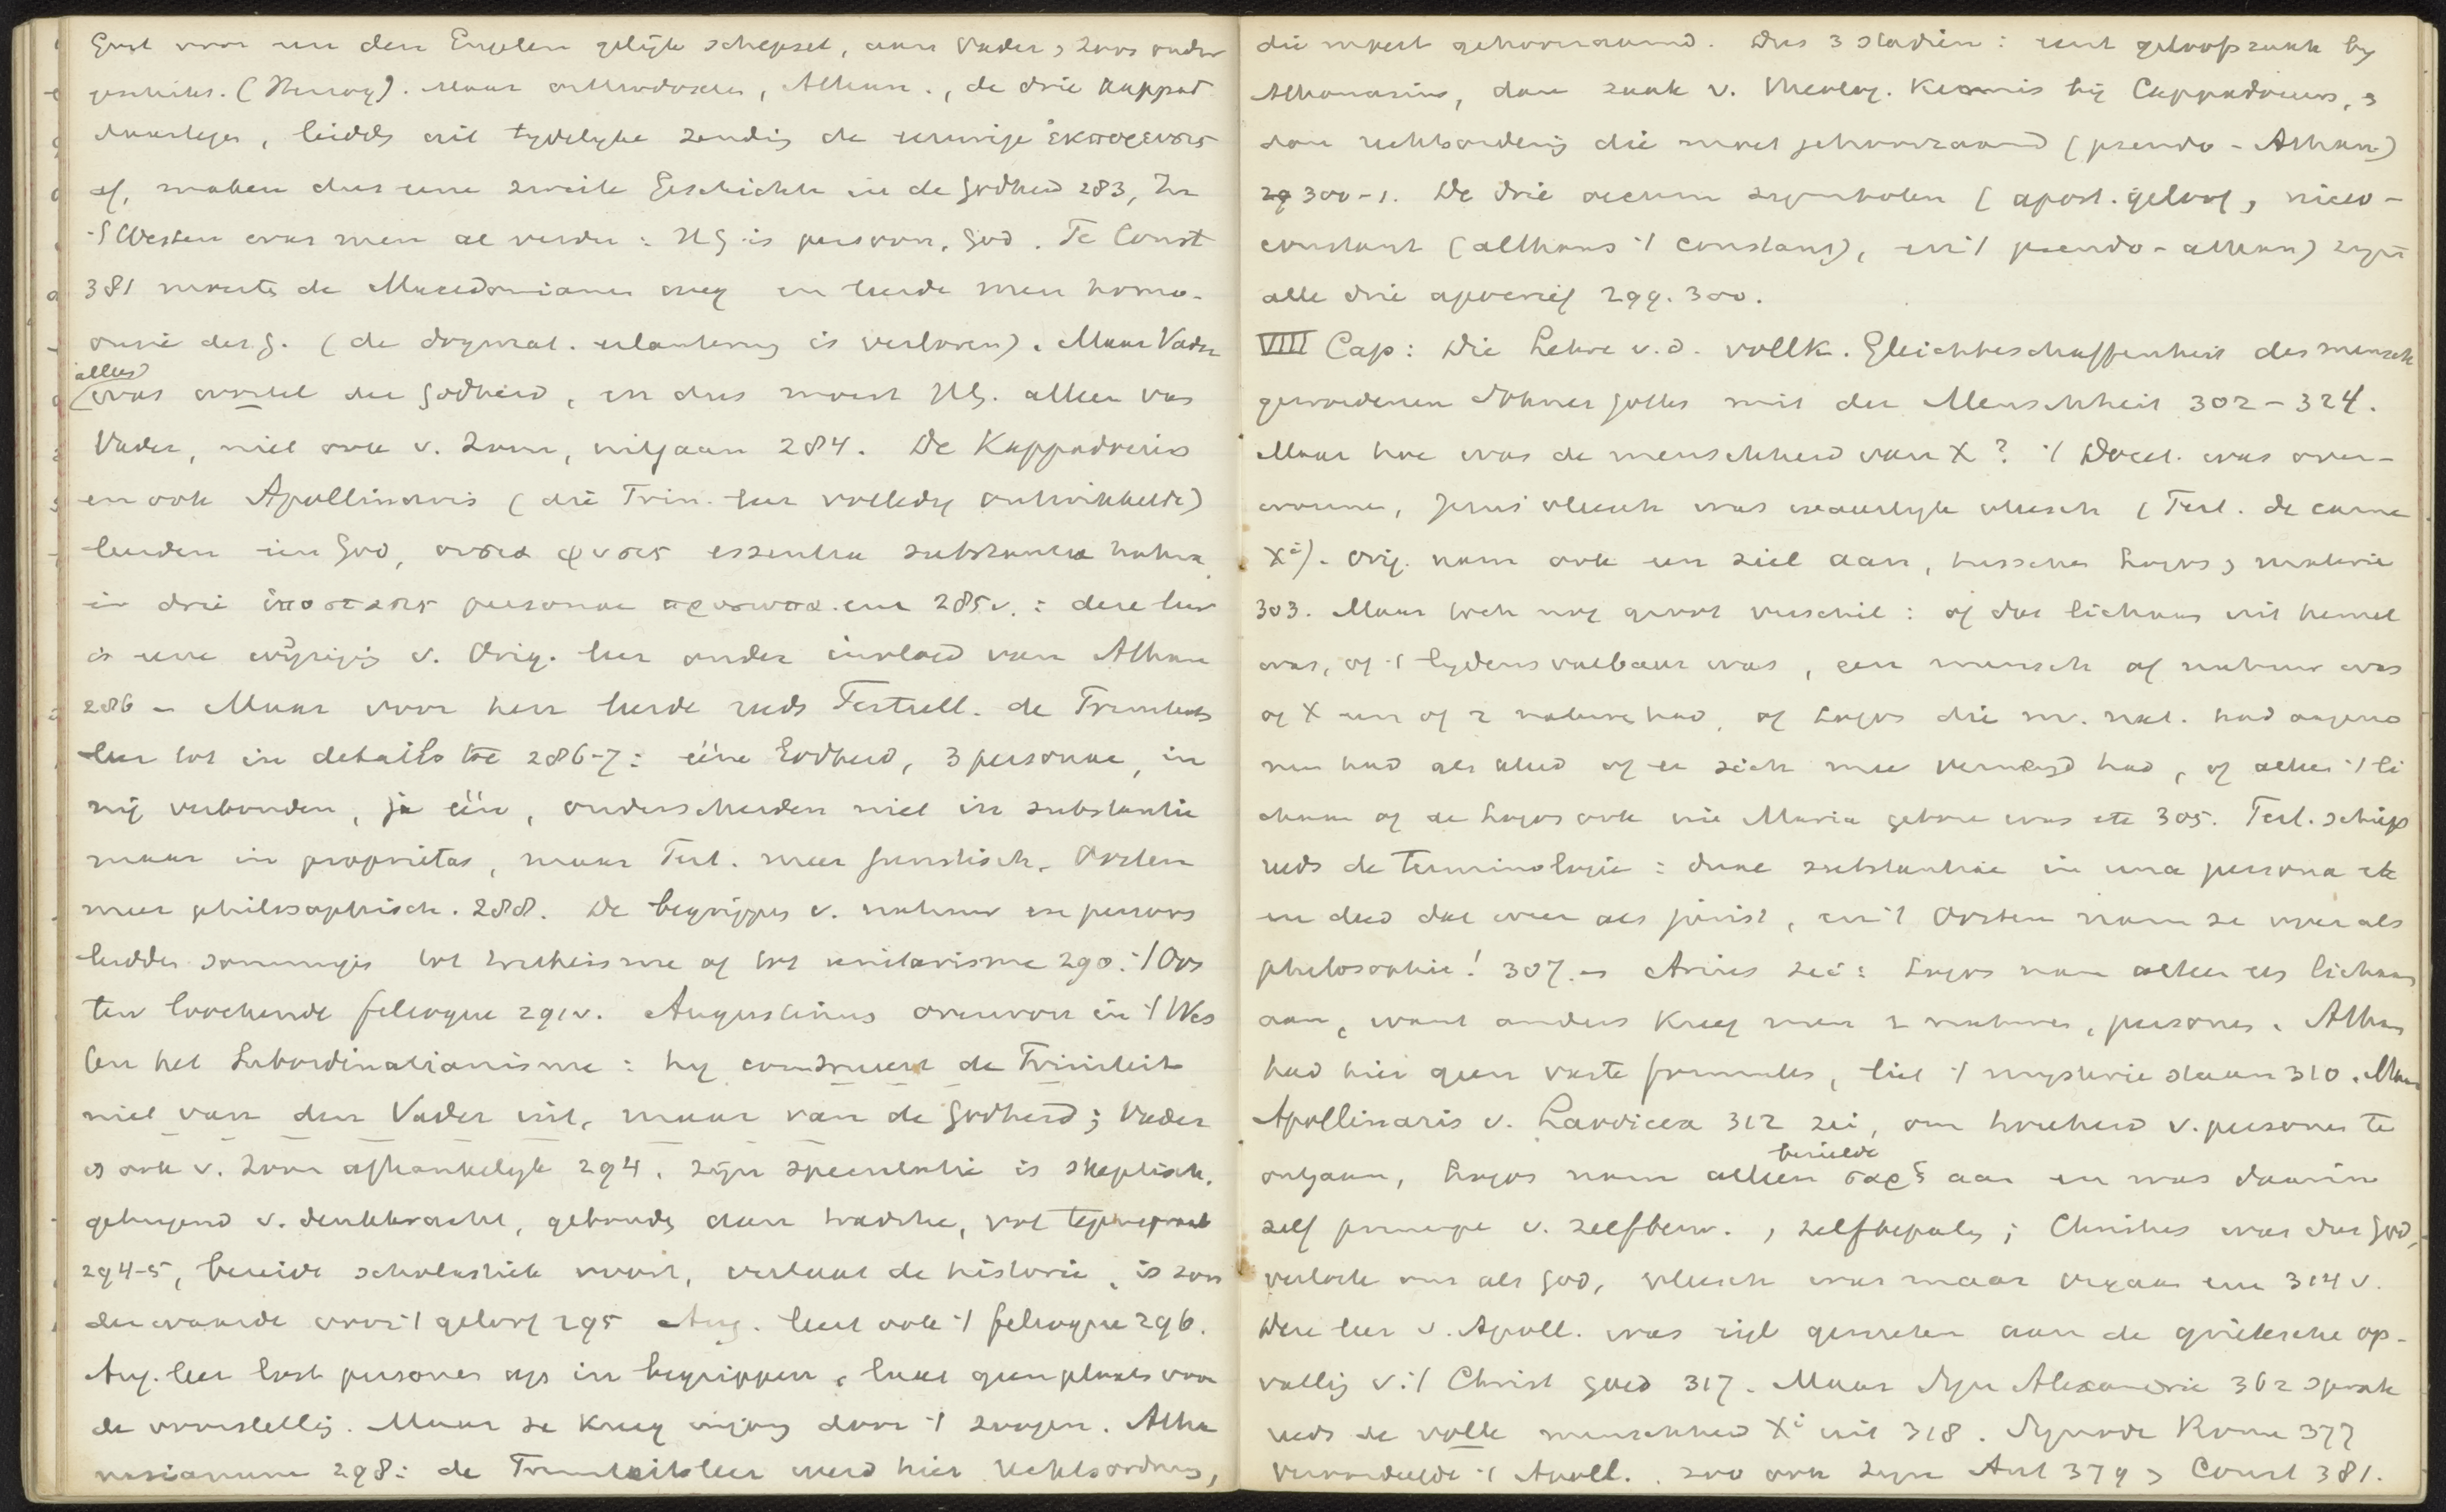 Geest voor een den Engelen gelijk schepsel, aan Vader & Zoon onder
geschikt. (Herzog). Maar orthodoxen, Athan., de drie Kappad
, leidd uit tydelyke zending de eeuwige ἐκπόρευσις
af, maken dus eene zweite Geschichte in de Godheid 283, In
't Westen was men al verder: HG is persoon, God. Te Const
381 moest de Macedonianen weg en leerde men homo-
ousie des G. (de dogmat. erlauterung is verloren). Maar Vader
alleen
was wortel der Godheid, en dus moest HG. alleen van
Vader, niet ook v. Zoon, uitgaan 284. De Kappadociers
en ook Apollinaris (die Trin. leer volledig ontwikkelde)
leerden één God, οὐσία φύσις essentia substantia natura
in drie ὑποστάσις personae πρόσωπα. enz 285v.: deze leer
is eene wijziging v. Orig. leer onder invloed van Athan
286 – Maar voor hen leerde reeds Tertull. de Triniteits
leer tot in details toe 286-7: ééne Godheid, 3 personae, in
mij verbonden, ja één, onderscheiden niet in substantie
maar in proprietas, maar Tert. meer juristisch. Oosten
meer philosophisch. 288. De begrippen v. natuur en persoon
leidden sommigen tot tritheisme of tot unitarisme 290. 't Oos
ten loochende filioque 291v. Augustinus overwon in 't Wes
ten het Subordinatianisme: hy construeert de Triniteit
niet van den Vader uit, maar van de Godheid; Vader
is ook v. Zoon afhankelyk 294. Zijn speculatie is skeptisch,
getuigend v. denkkracht, gebonden aan traditie, vol tegenspraak
294-5, bereidt scholastiek voor, verlaat de historie, is zon
der waarde voor 't geloof 295 Aug. leert ook 't filioque 296.
Aug. leer lost personen op in begrippen, laat geen plaats voor
de voorstelling. Maar ze kreeg ingang door 't zoogen. Atha
nasianum 298: de Triniteitsleer werd hier Rechtsordnung,
die moest gehoorzaamd. Dus 3 stadien: eerst geloofszaak by
Athanasius, dan zaak v. theolog. Kennis bij Cappadociers, &
dan rechtsordening die moet gehoorzaamd (pseudo-Athan)
300-1. De drie oecum symbolen (apost. geloof, niceo-
constant (althans 't constant), en 't pseudo-athan) zyn
alle drie apocrief 299. 300.
VIII Cap: Die Lehre v.d. vollk. Gleichbeschaffenheit des mensch
gewordenen Sohnes Gottes mit der Menschheit 302-324.
Maar hoe was de menschheid van X? 't Docet. was over-
wonnen, Jezus vleesch was waarlyk vleesch (Tert. de carne
Xi). Orig. nam ook een ziel aan, tusschen Logos & materie
303. Maar toch nog groot verschil: of dat lichaam uit hemel
was, of 't lydensvatbaar was, een mensch of natuur was
of X een of 2 naturen had, of Logos die m. nat. had aangeno
men had als kleed of er zich mee vermengd had, of alleen 't li
chaam of de Logos ook uit Maria geboren was etc 305. Tert. schiep
reeds de terminologie: duae substantiae in una persona etc
en deed dat weer als jurist, en 't Oosten nam ze over als
philosophie! 307.– Arius zei: Logos nam alleen een lichaam
aan, want anders kreeg men 2 naturen, personen. Athan
had hier geen vaste formules, liet 't mysterie staan 310. Maar
Apollinaris v. Laodicea 312 zei, om tweeheid v. personen te
bezielde
ontgaan, Logos nam alleen σαρξ aan en was daarin
zelf principe v. zelfbew. & zelfbepaling; Christus was dus God,
verloste ons als God, vleesch was maar orgaan enz 314 v.
Deze leer v. Apoll. was eigl gemeten aan de grieksche op-
vatting v. 't Christ goed 317. Maar Syn Alexandrie 362 sprak
reeds de volle menschheid Xi uit 318. Synode Rome 377
veroordeelde 't Apoll. zoo ook Syn Ant 379 & Const 381.